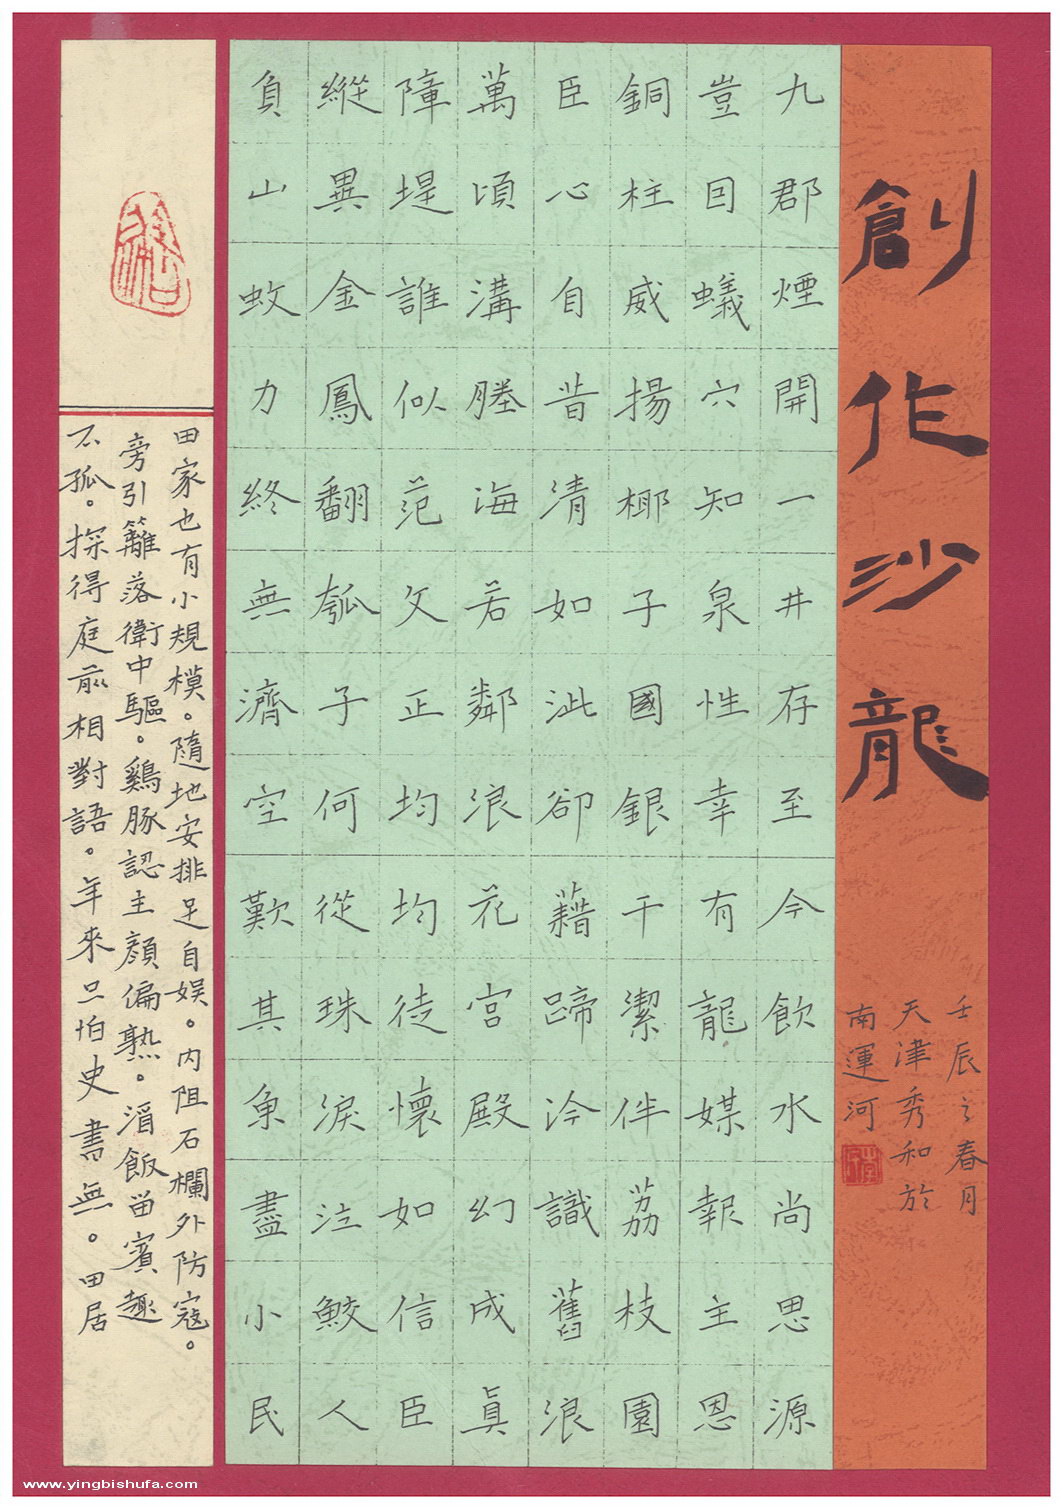 創作沙龍
壬辰之春月
天津秀和於
南運河
九郡煙開一井存至今飲水尚思源
豈因蟻穴知泉性幸有龍媒報主恩
銅柱威揚椰子國銀干潔伴荔枝園
臣心自昔清如泚卻藉蹄汵識舊浪
萬頃溝塍海若鄰浪花宮殿幻成真
障堤誰似范文正均均徒懷如信臣
縱異金鳳翻瓠子何從珠淚泣鮫人
負山蚊力終無濟空歎其魚盡小民
田家也有小規模。隨地安排足自娛。內阻石欄外防寇。
旁引籬落衛中驅。鷄豚認主顏偏熟。飯留賓趣
不孤。探得庭前相對語。年來只怕史書無。田居
www.yingbishufa.com